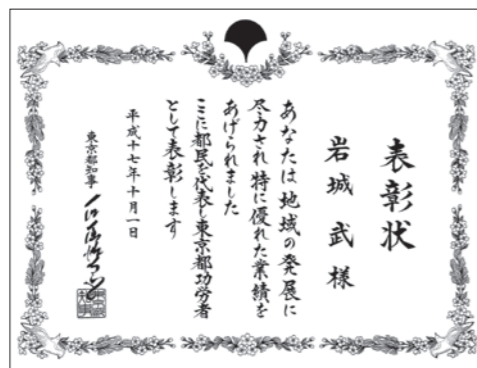 表彰状
岩城 武 様
あなたは地域の発展に
尽力され特に優れた業績を
あげられました
ここに都民を代表し東京都功労者
として表彰します
平成十七年十月一日
東京都知事 石原慎太郎